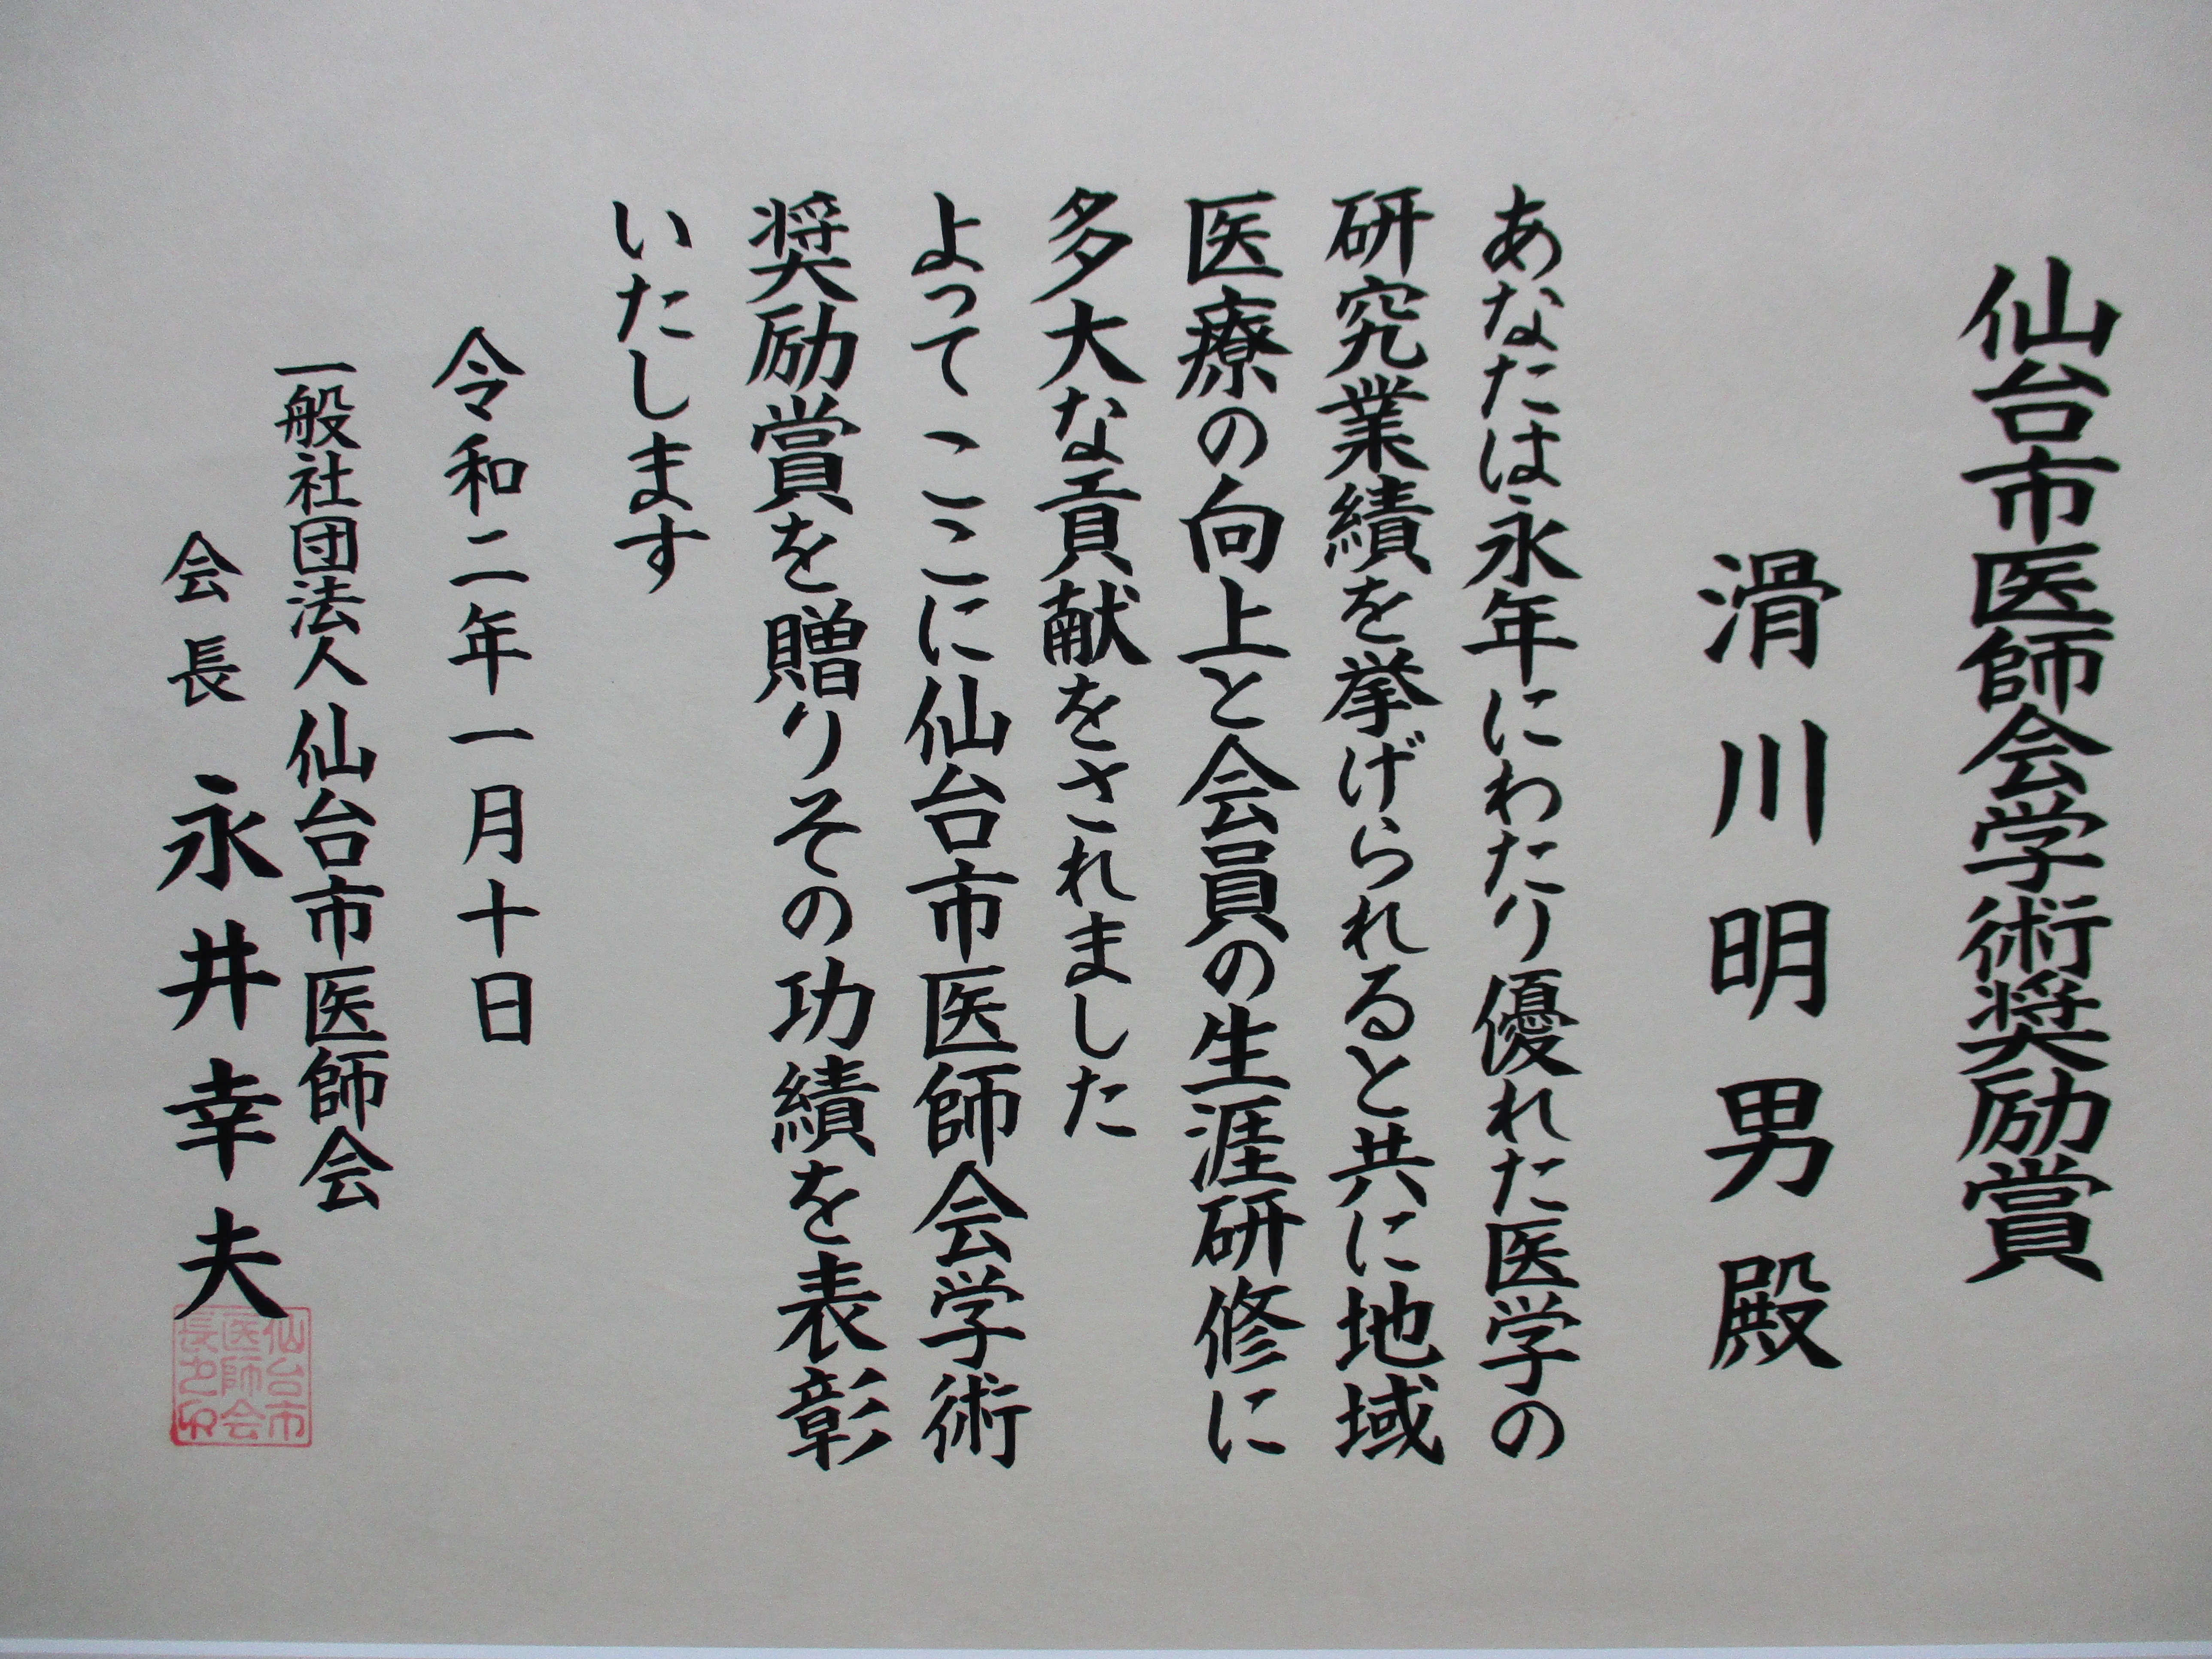 仙台市医師会学術奨励賞
滑川明男殿
あなたは永年にわたり優れた医学の
研究業績を挙げられると共に地域
医療の向上と会員の生涯研修に
多大な貢献をされました
よってここに仙台市医師会学術
奨励賞を贈りその功績を表彰
いたします
令和二年一月十日
一般社団法人仙台市医師会
会長 永井幸夫
仙台市
医師会
長之印